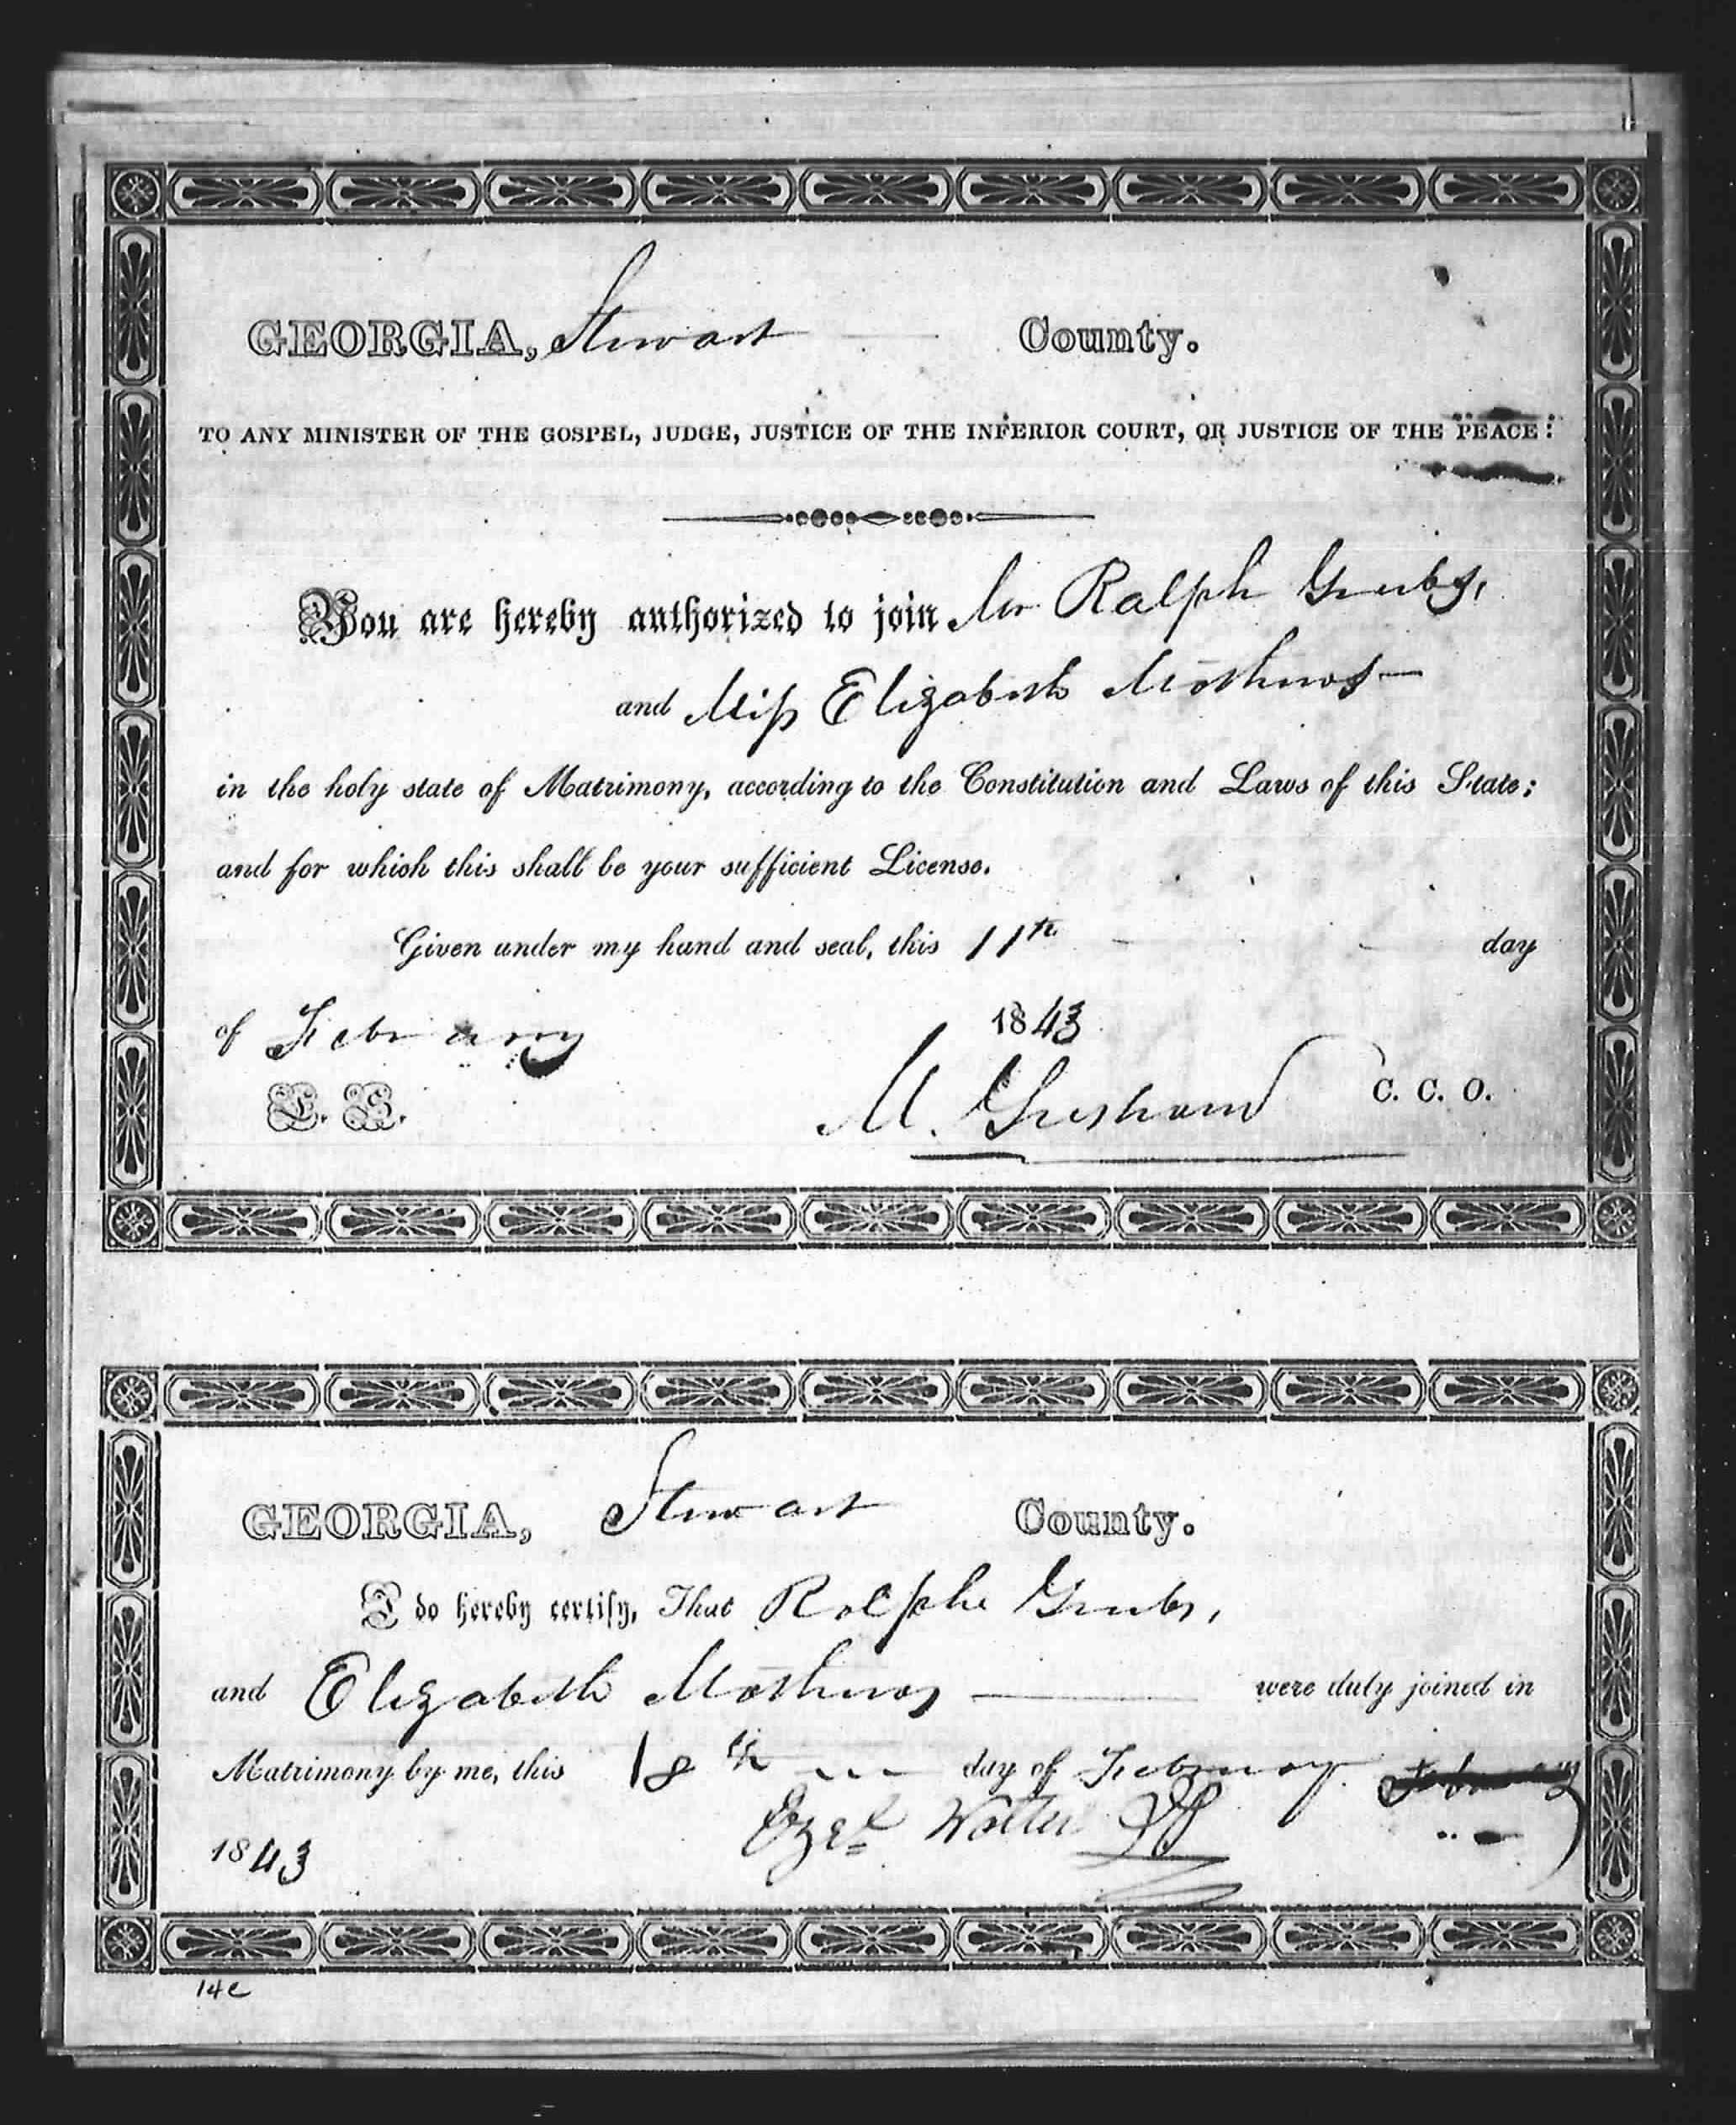 GEORGIA, Stewart County.
TO ANY MINISTER OF THE GOSPEL, JUDGE, JUSTICE OF THE INFERIOR COURT, OR JUSTICE OF THE PEACE:
You are hereby authorized to join Mr Ralph Grubs,
and Miss Elizabeth Mathews
in the holy state of Matrimony, according to the Constitution and Laws of this State;
and for which this shall be your sufficient License.
Given under my hand and seal, this 11th day
of February 1843
L. S. M. Gresham C. C. O.
GEORGIA, Stewart County.
I do hereby certify, That Ralph Grubs,
and Elizabeth Mathews were duly joined in
Matrimony by me, this 18th day of February
1843 Ezel Walter JP
14c